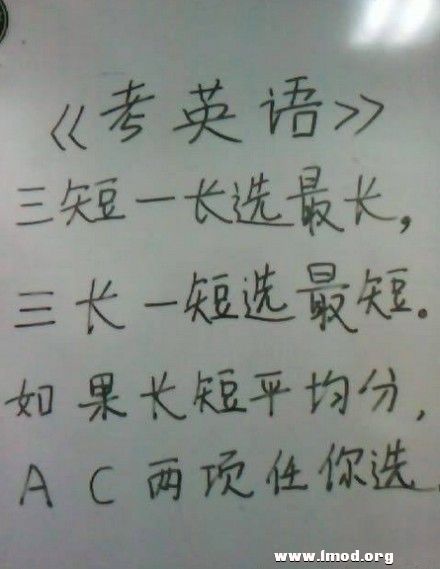 《考英语》
三短一长选最长,
三长一短选最短。
如果长短平均分,
A C 两项任你选
www.lmod.org